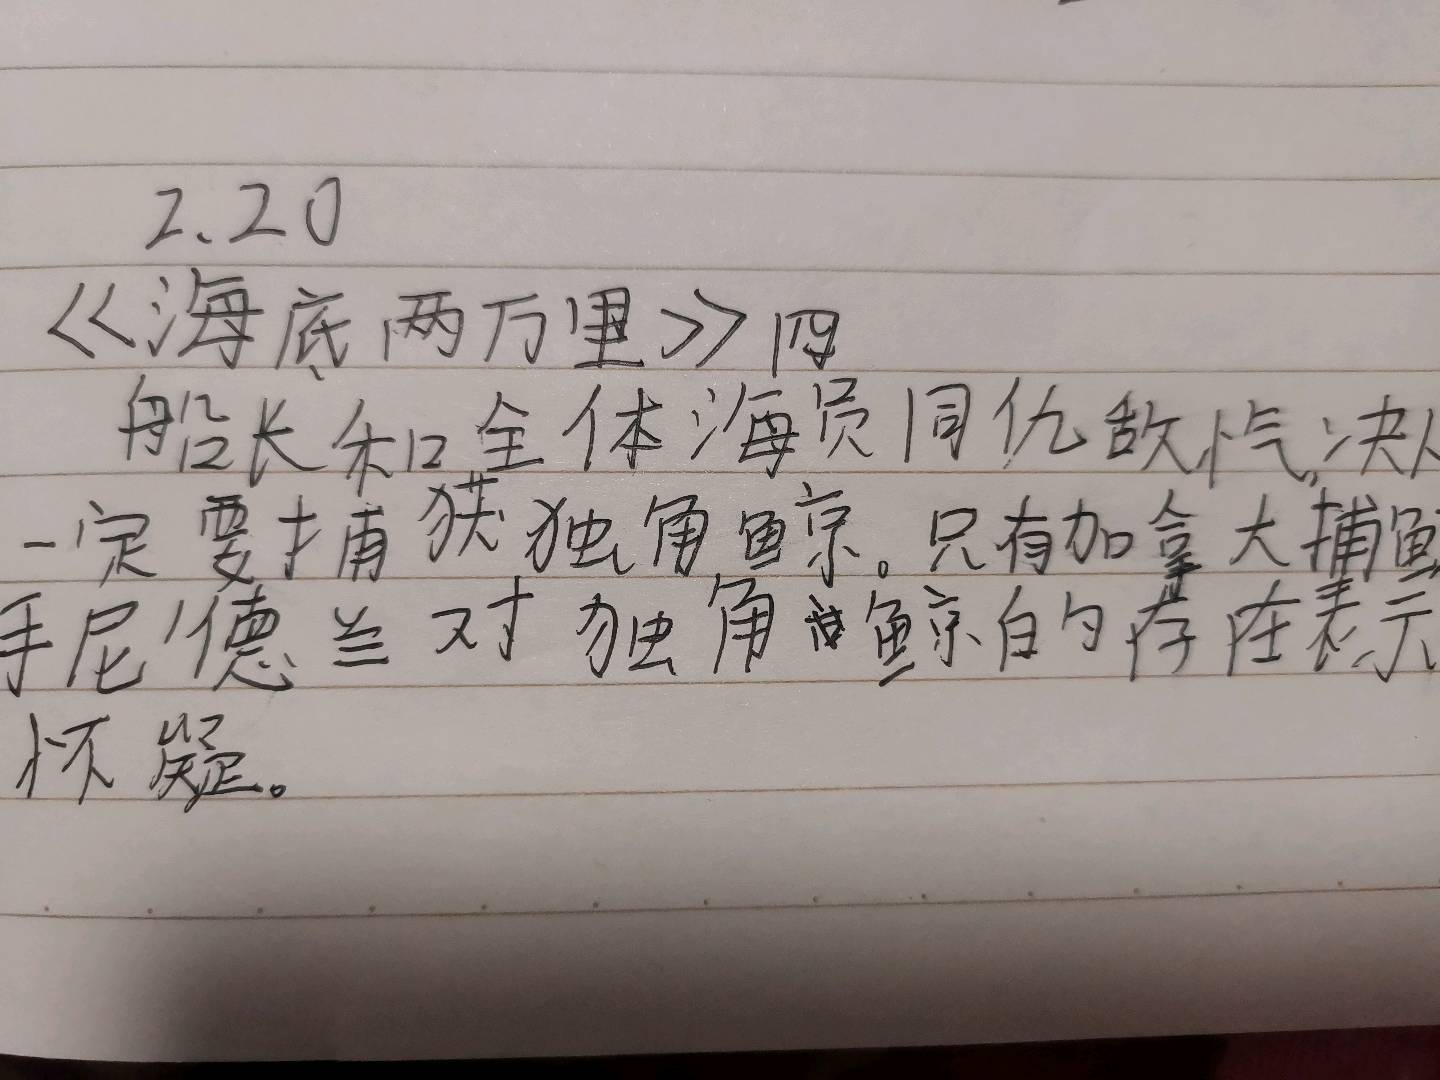 2.20
《海底两万里》四
船长和全体海员同仇敌忾,决
一定要捕获独角鲸。只有加拿大捕鱼
手尼德兰对独角鲸的存在表示
怀疑。